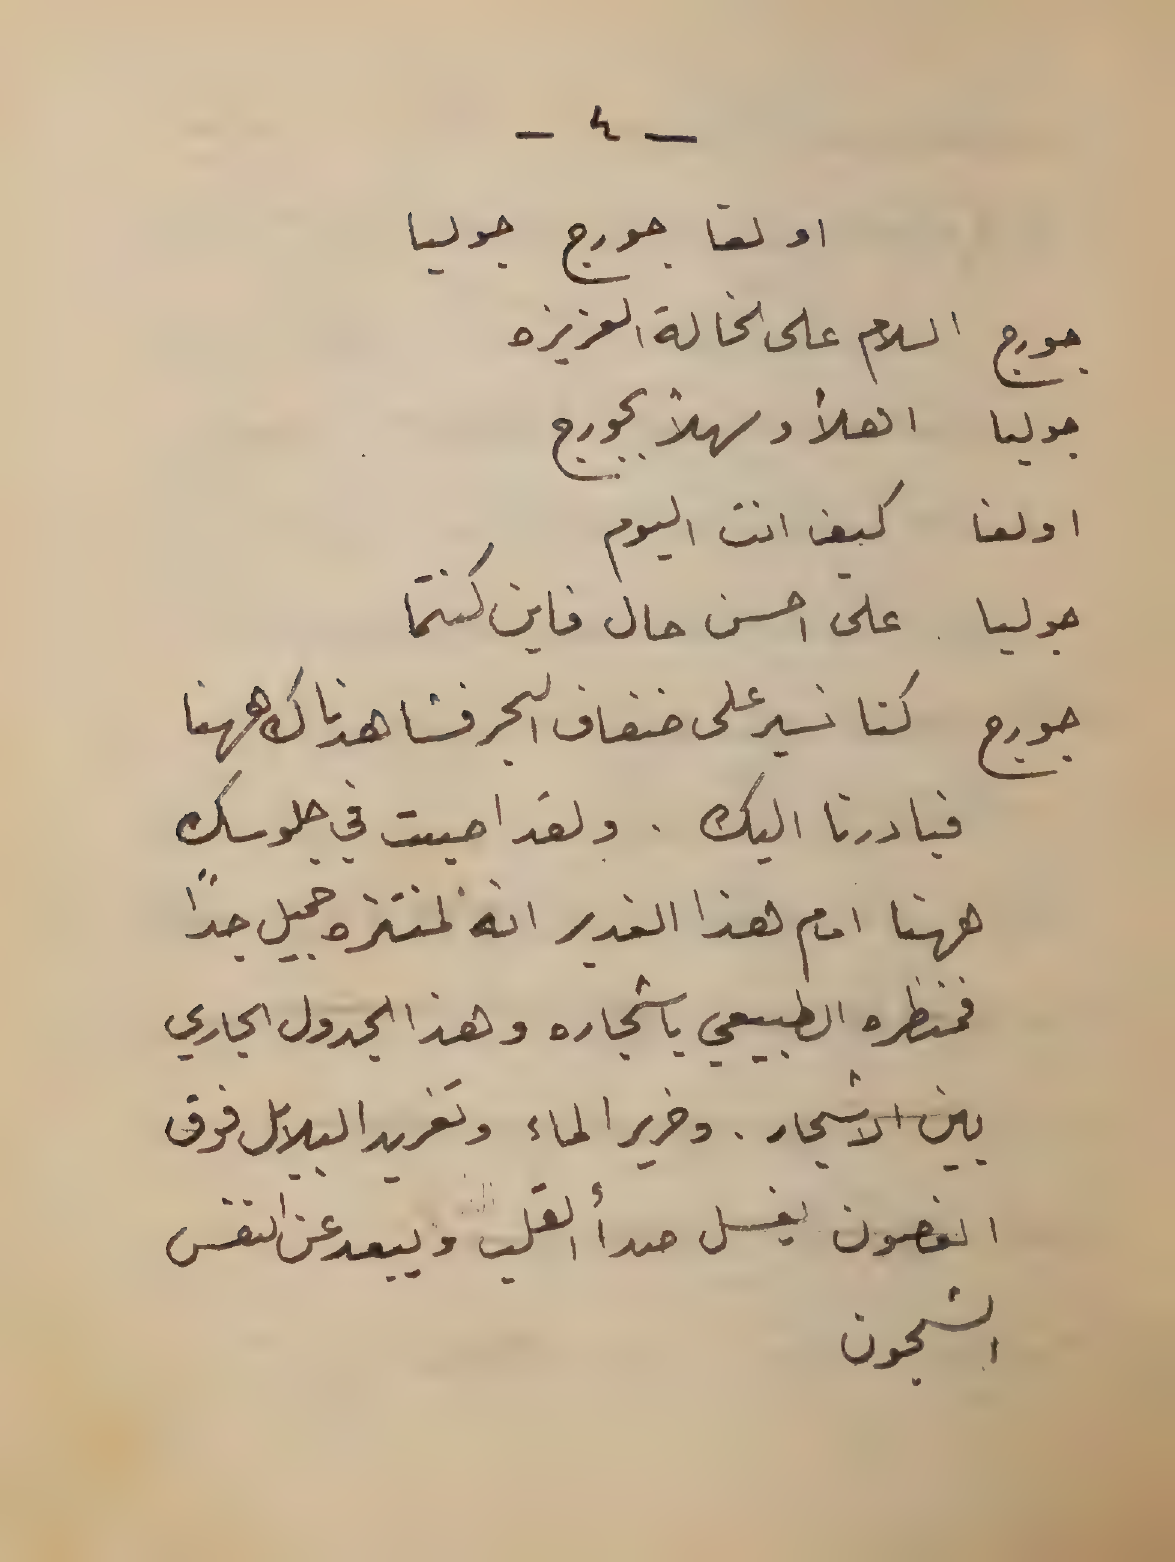 - ٤ -
اولغا جورج جوليا
جورج السلام على الخالة العزيزه
جوليا اهلاً وسهلاً بجورج
اولغا كيف انت اليوم
جوليا على احسن حال فاين كنتما
جورج كنا نسير على ضفاف البحر فشاهدناك ههنا
فبادرنا اليك . ولقد اصبت في جلوسك
ههنا امام هذا الغدير انه لمنتزه جميل جدًا
فمنظره الطبيعي باشجاره وهذا الجدول الجاري
بين الاشجار . وخرير الماء وتغريد البلابل فوق
الغصون يغسل صدأ القلب ويبعد عن النفس
الشجون